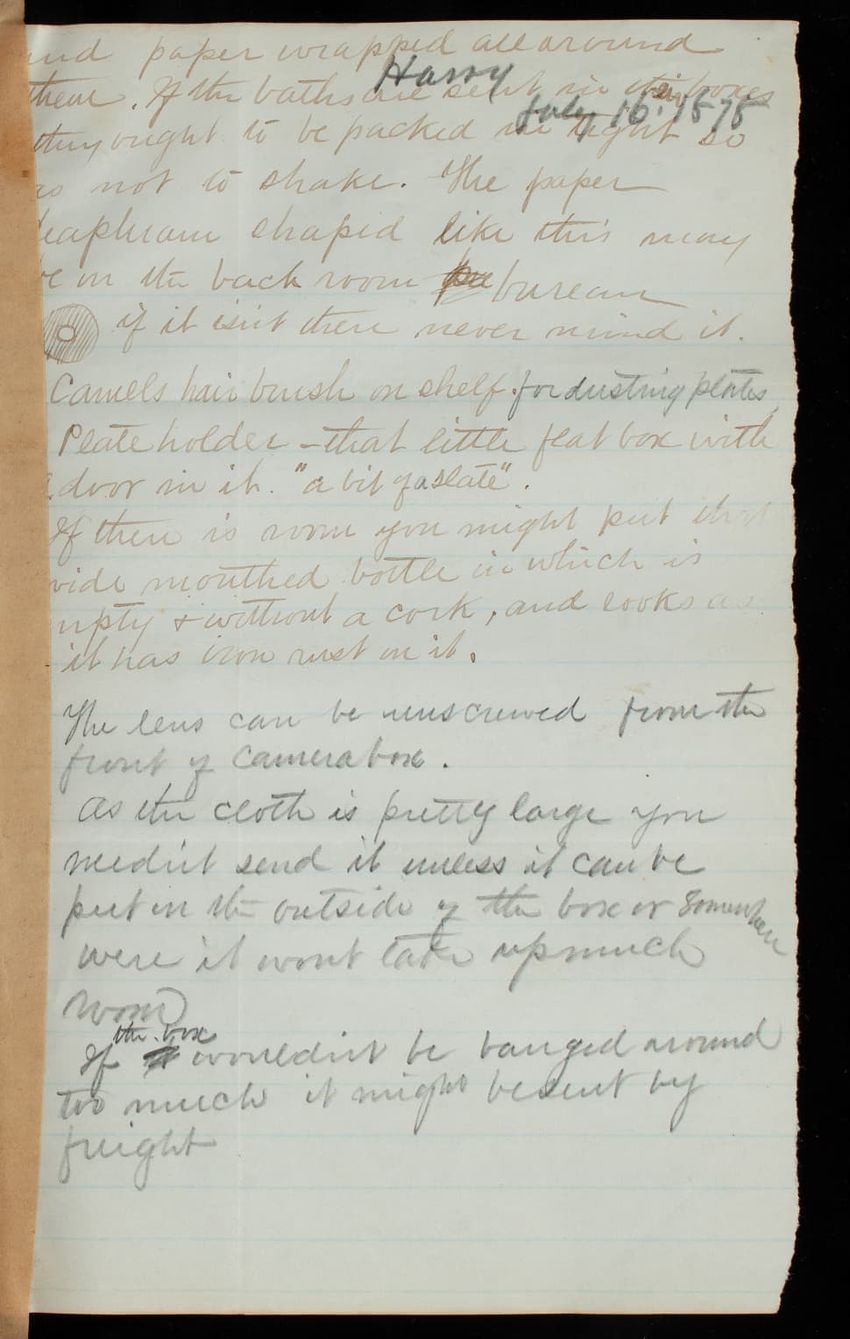 and paper wrapped all around
Harry
them. If the baths are sent in their boxes
July 16. 1878
they ought to be packed in tight so
as not to shake. The paper
deaphram shaped like this may
be on the back room bureau
if it isn't there never mind it.
Camels hair brush on shelf. for dusting plates.
Plate holder - that little flat box with
a door in it. "a bit of a slate".
If there is room you might put that
wide mouthed bottle in which is
empty & without a cork, and looks as
it has iron rust in it.
The lens can be unscrewed from the
front of camera box.
As the cloth is pretty large you
needn't send it unless it can be
put in the outside of the box or somewhere
were it wont take up much
room
the box
If wouldn't be banged around
too much it might be sent by
freight